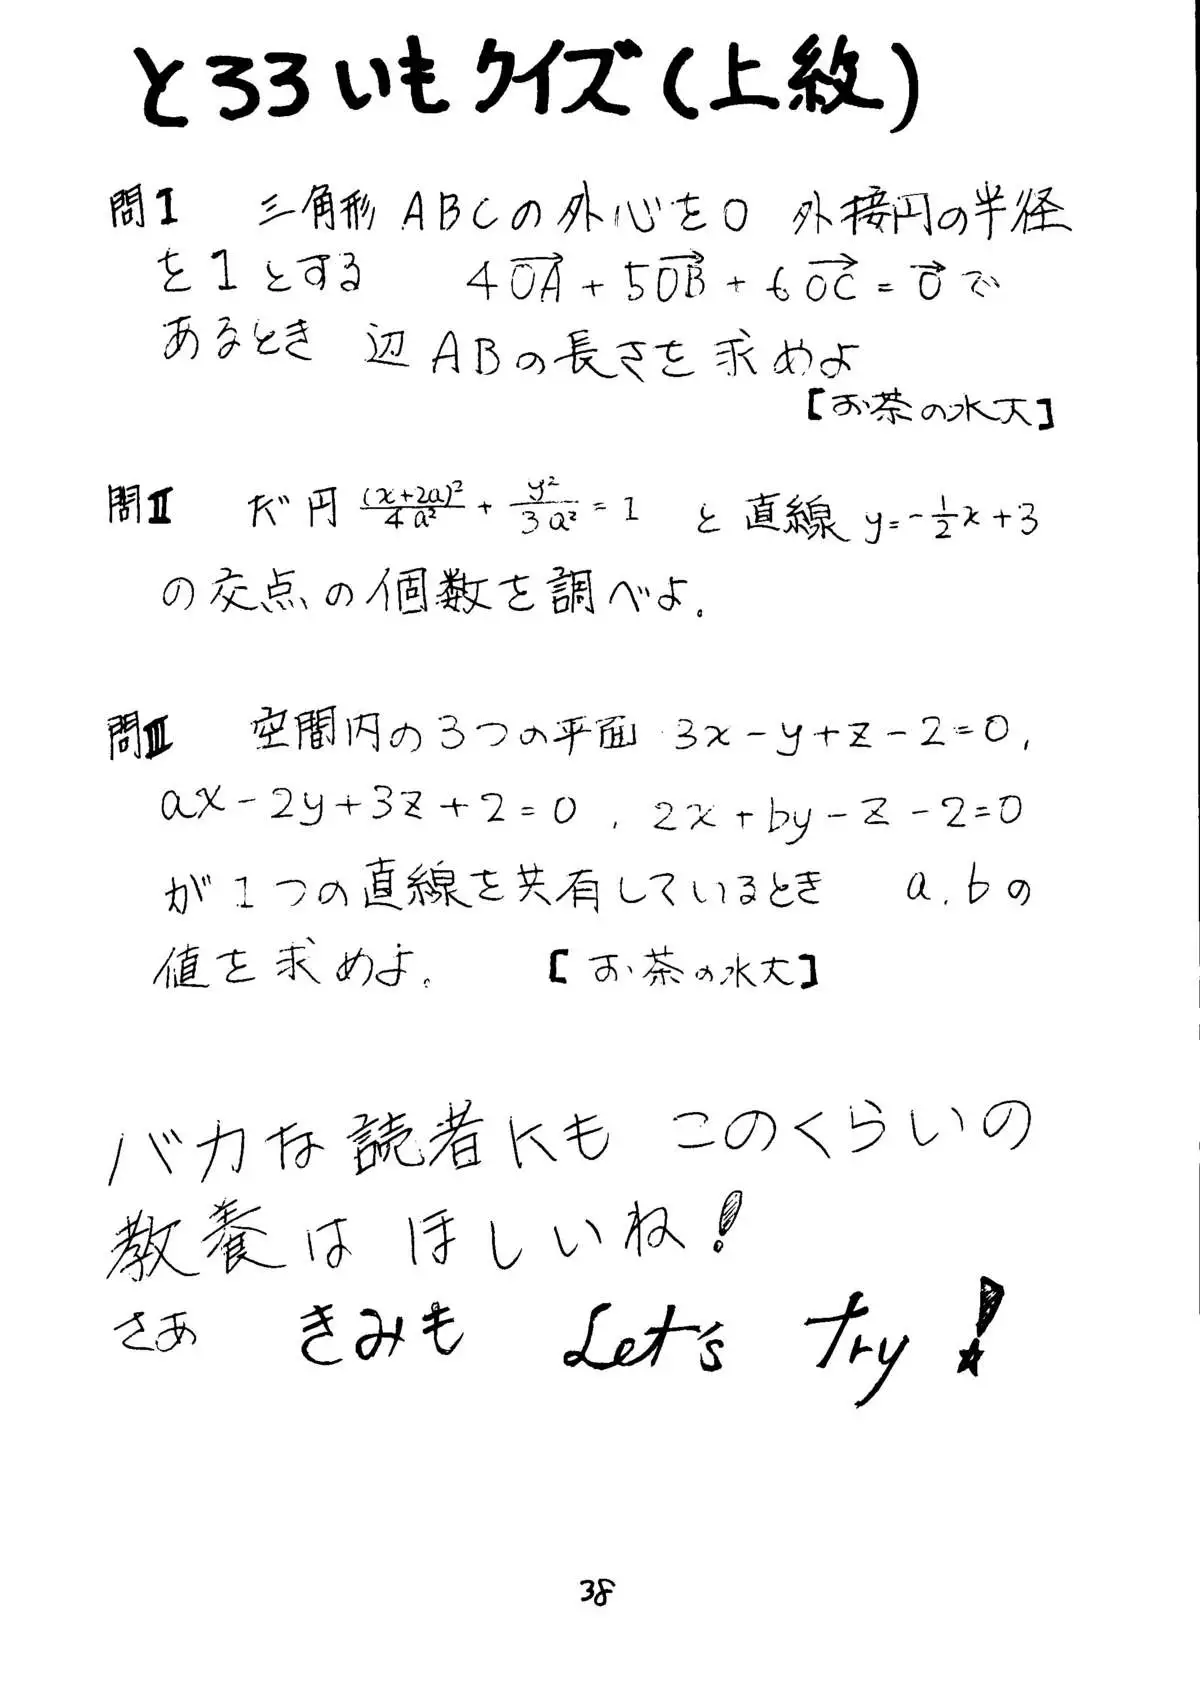 とろろいもクイズ(上紋)
問I 三角形ABCの外心をO 外接円の半径
を1とする 4OA→+5OB→+6OC→=0→で
あるとき 辺ABの長さを求めよ
[お茶の水大]
問II だ円 (x+2a)²/4a² + y²/3a² = 1 と直線 y=-1/2x+3
の交点の個数を調べよ.
問III 空間内の3つの平面 3x-y+z-2=0,
ax-2y+3z+2=0, 2x+by-z-2=0
が1つの直線を共有しているとき a,bの
値を求めよ. [お茶の水大]
バカな読者Kも このくらいの
教養は ほしいね!
さあ きみも Let's try!
38